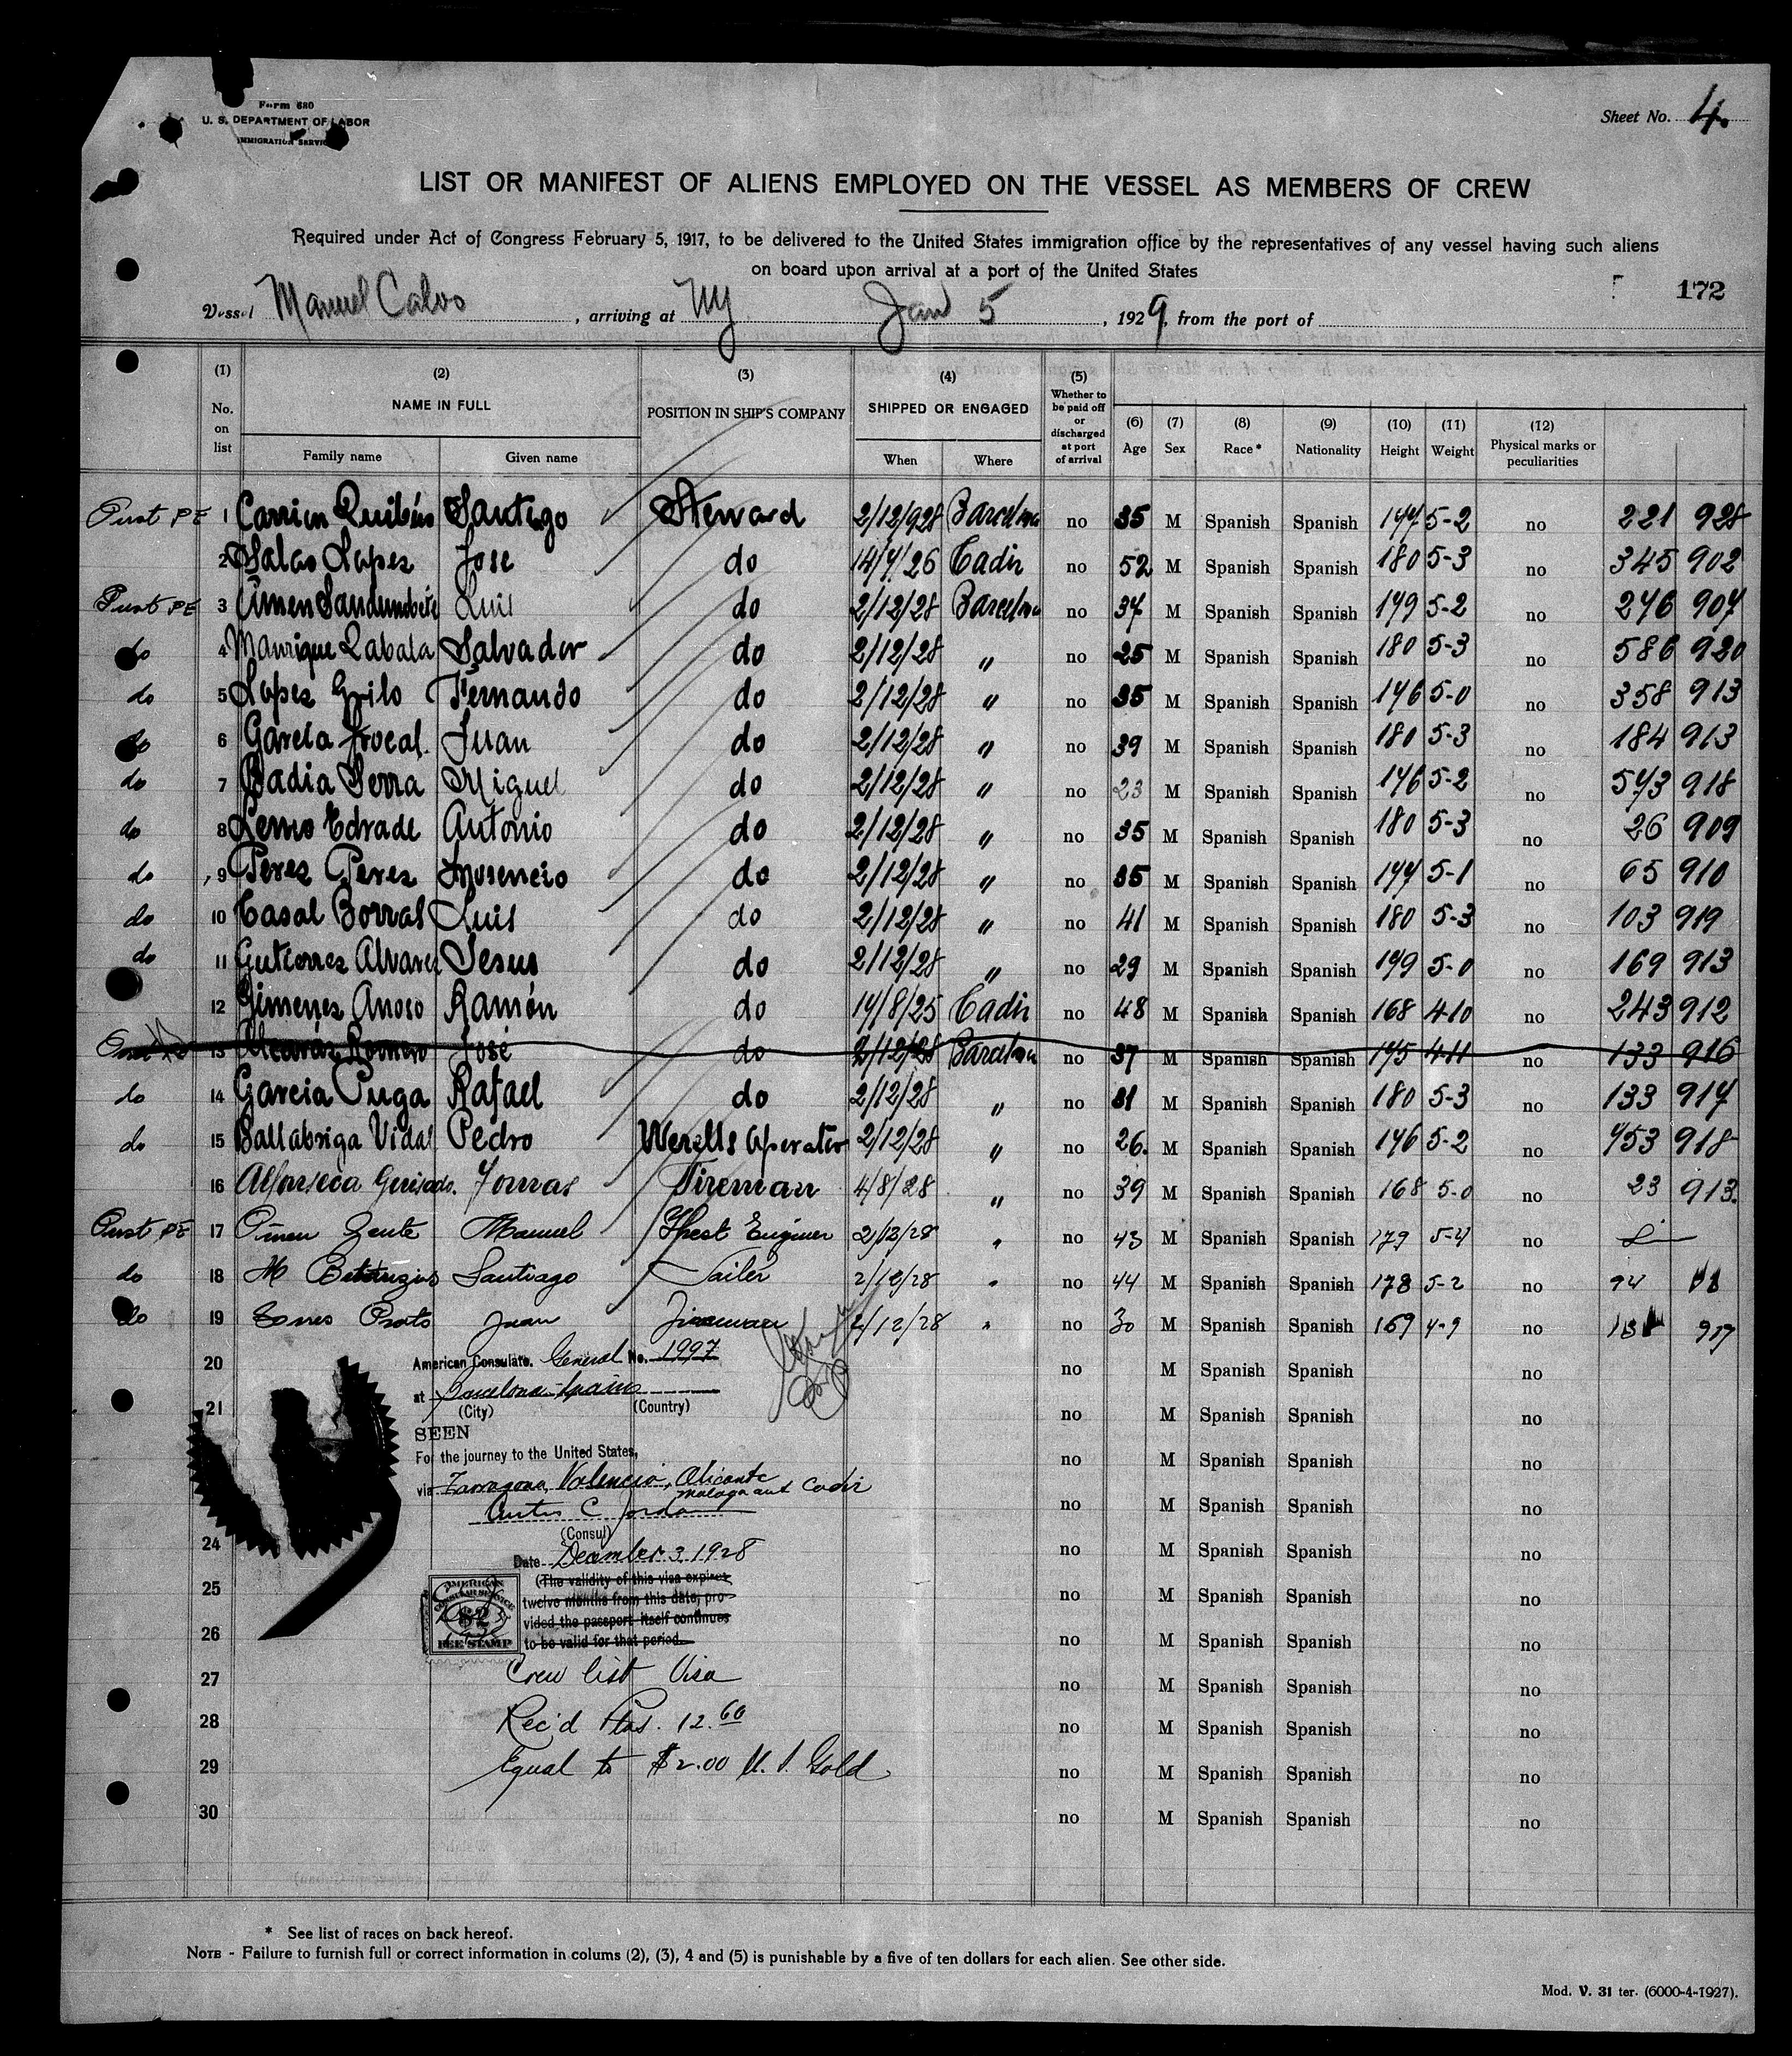 Form 680
U. S. DEPARTMENT OF LABOR
IMMIGRATION SERVICE
Sheet No. 4.
LIST OR MANIFEST OF ALIENS EMPLOYED ON THE VESSEL AS MEMBERS OF CREW
Required under Act of Congress February 5, 1917, to be delivered to the United States immigration office by the representatives of any vessel having such aliens
on board upon arrival at a port of the United States
172
Vessel Manuel Calvo, arriving at NY Jan 5, 1929, from the port of
(1) No. on list
(2) NAME IN FULL Family name Given name
(3) POSITION IN SHIP'S COMPANY
(4) SHIPPED OR ENGAGED When Where
(5) Whether to be paid off or discharged at port of arrival
(6) Age (7) Sex (8) Race * (9) Nationality (10) Height (11) Weight (12) Physical marks or peculiarities
1 Santigo Steward 2/12/928 Barcelona no 35 M Spanish Spanish 5-2 no 221 928
2 Salas Lopez Jose do 26 Cadiz no 52 M Spanish Spanish 180 5-3 no 345 902
3 Luis do 2/12/28 Barcelona no M Spanish Spanish 5-2 no 907
do 4 Manrique Zabala Salvador do 2/12/28 " no 25 M Spanish Spanish 180 5-3 no 586 920
do 5 Lopez Grilo Fernando do 2/12/28 " no 35 M Spanish Spanish 146 5-0 no 358 913
do 6 Garcia Juan do 2/12/28 " no 39 M Spanish Spanish 180 5-3 no 184 913
do 7 Badia Serra Miguel do 2/12/28 " no 23 M Spanish Spanish 146 5-2 no 573 918
do 8 Antonio do 2/12/28 " no 35 M Spanish Spanish 180 5-3 no 26 909
do 9 Perez Perez do 2/12/28 " no 35 M Spanish Spanish 5-1 no 65 910
do 10 Casal Borras Luis do 2/12/28 " no 41 M Spanish Spanish 180 5-3 no 103 919
do 11 Gutierrez Alvarez Jesus do 2/12/28 " no 29 M Spanish Spanish 5-0 no 169 913
12 Gimenez Ramón do 8/25 Cadiz no 48 M Spanish Spanish 168 4-10 no 243 912
13 Romero José do 2/12/28 Barcelona no 37 M Spanish Spanish 4-11 no 133 916
do 14 Garcia Puga Rafael do 2/12/28 " no 31 M Spanish Spanish 180 5-3 no 133 917
do 15 Ballabriga Vidal Pedro Operator 2/12/28 " no 26. M Spanish Spanish 146 5-2 no 918
16 Tomas Fireman 4/8/28 " no 39 M Spanish Spanish 168 5-0 no 23 913.
17 Manuel 2/12/28 " no 43 M Spanish Spanish 179 5-4 no
do 18 Santiago Sailer 2/12/28 " no 44 M Spanish Spanish 178 5-2 no 94
do 19 Juan Fireman 2/12/28 " no 30 M Spanish Spanish 169 4-9 no
20 no M Spanish Spanish no
American Consulate. General No. 1997
21 no M Spanish Spanish no
at Barcelona - Spain
(City) (Country)
SEEN
For the journey to the United States,
no M Spanish Spanish no
via Tarragona, Valencia, Alicante
Malaga and Cadiz
no M Spanish Spanish no
(Consul)
24 no M Spanish Spanish no
Date December 3 1928
25 no M Spanish Spanish no
(The validity of this visa expires
twelve months from this date, pro-
vided the passport itself continues
to be valid for that period.
AMERICAN
CONSULAR SERVICE
$2
FEE STAMP
26 no M Spanish Spanish no
Crew list Visa
27 no M Spanish Spanish no
Rec'd Ptas. 12.60
28 no M Spanish Spanish no
Equal to $2.00 U. S. Gold
29 no M Spanish Spanish no
30 no M Spanish Spanish no
* See list of races on back hereof.
NOTE - Failure to furnish full or correct information in colums (2), (3), 4 and (5) is punishable by a five of ten dollars for each alien. See other side.
Mod. V. 31 ter. (6000-4-1927).